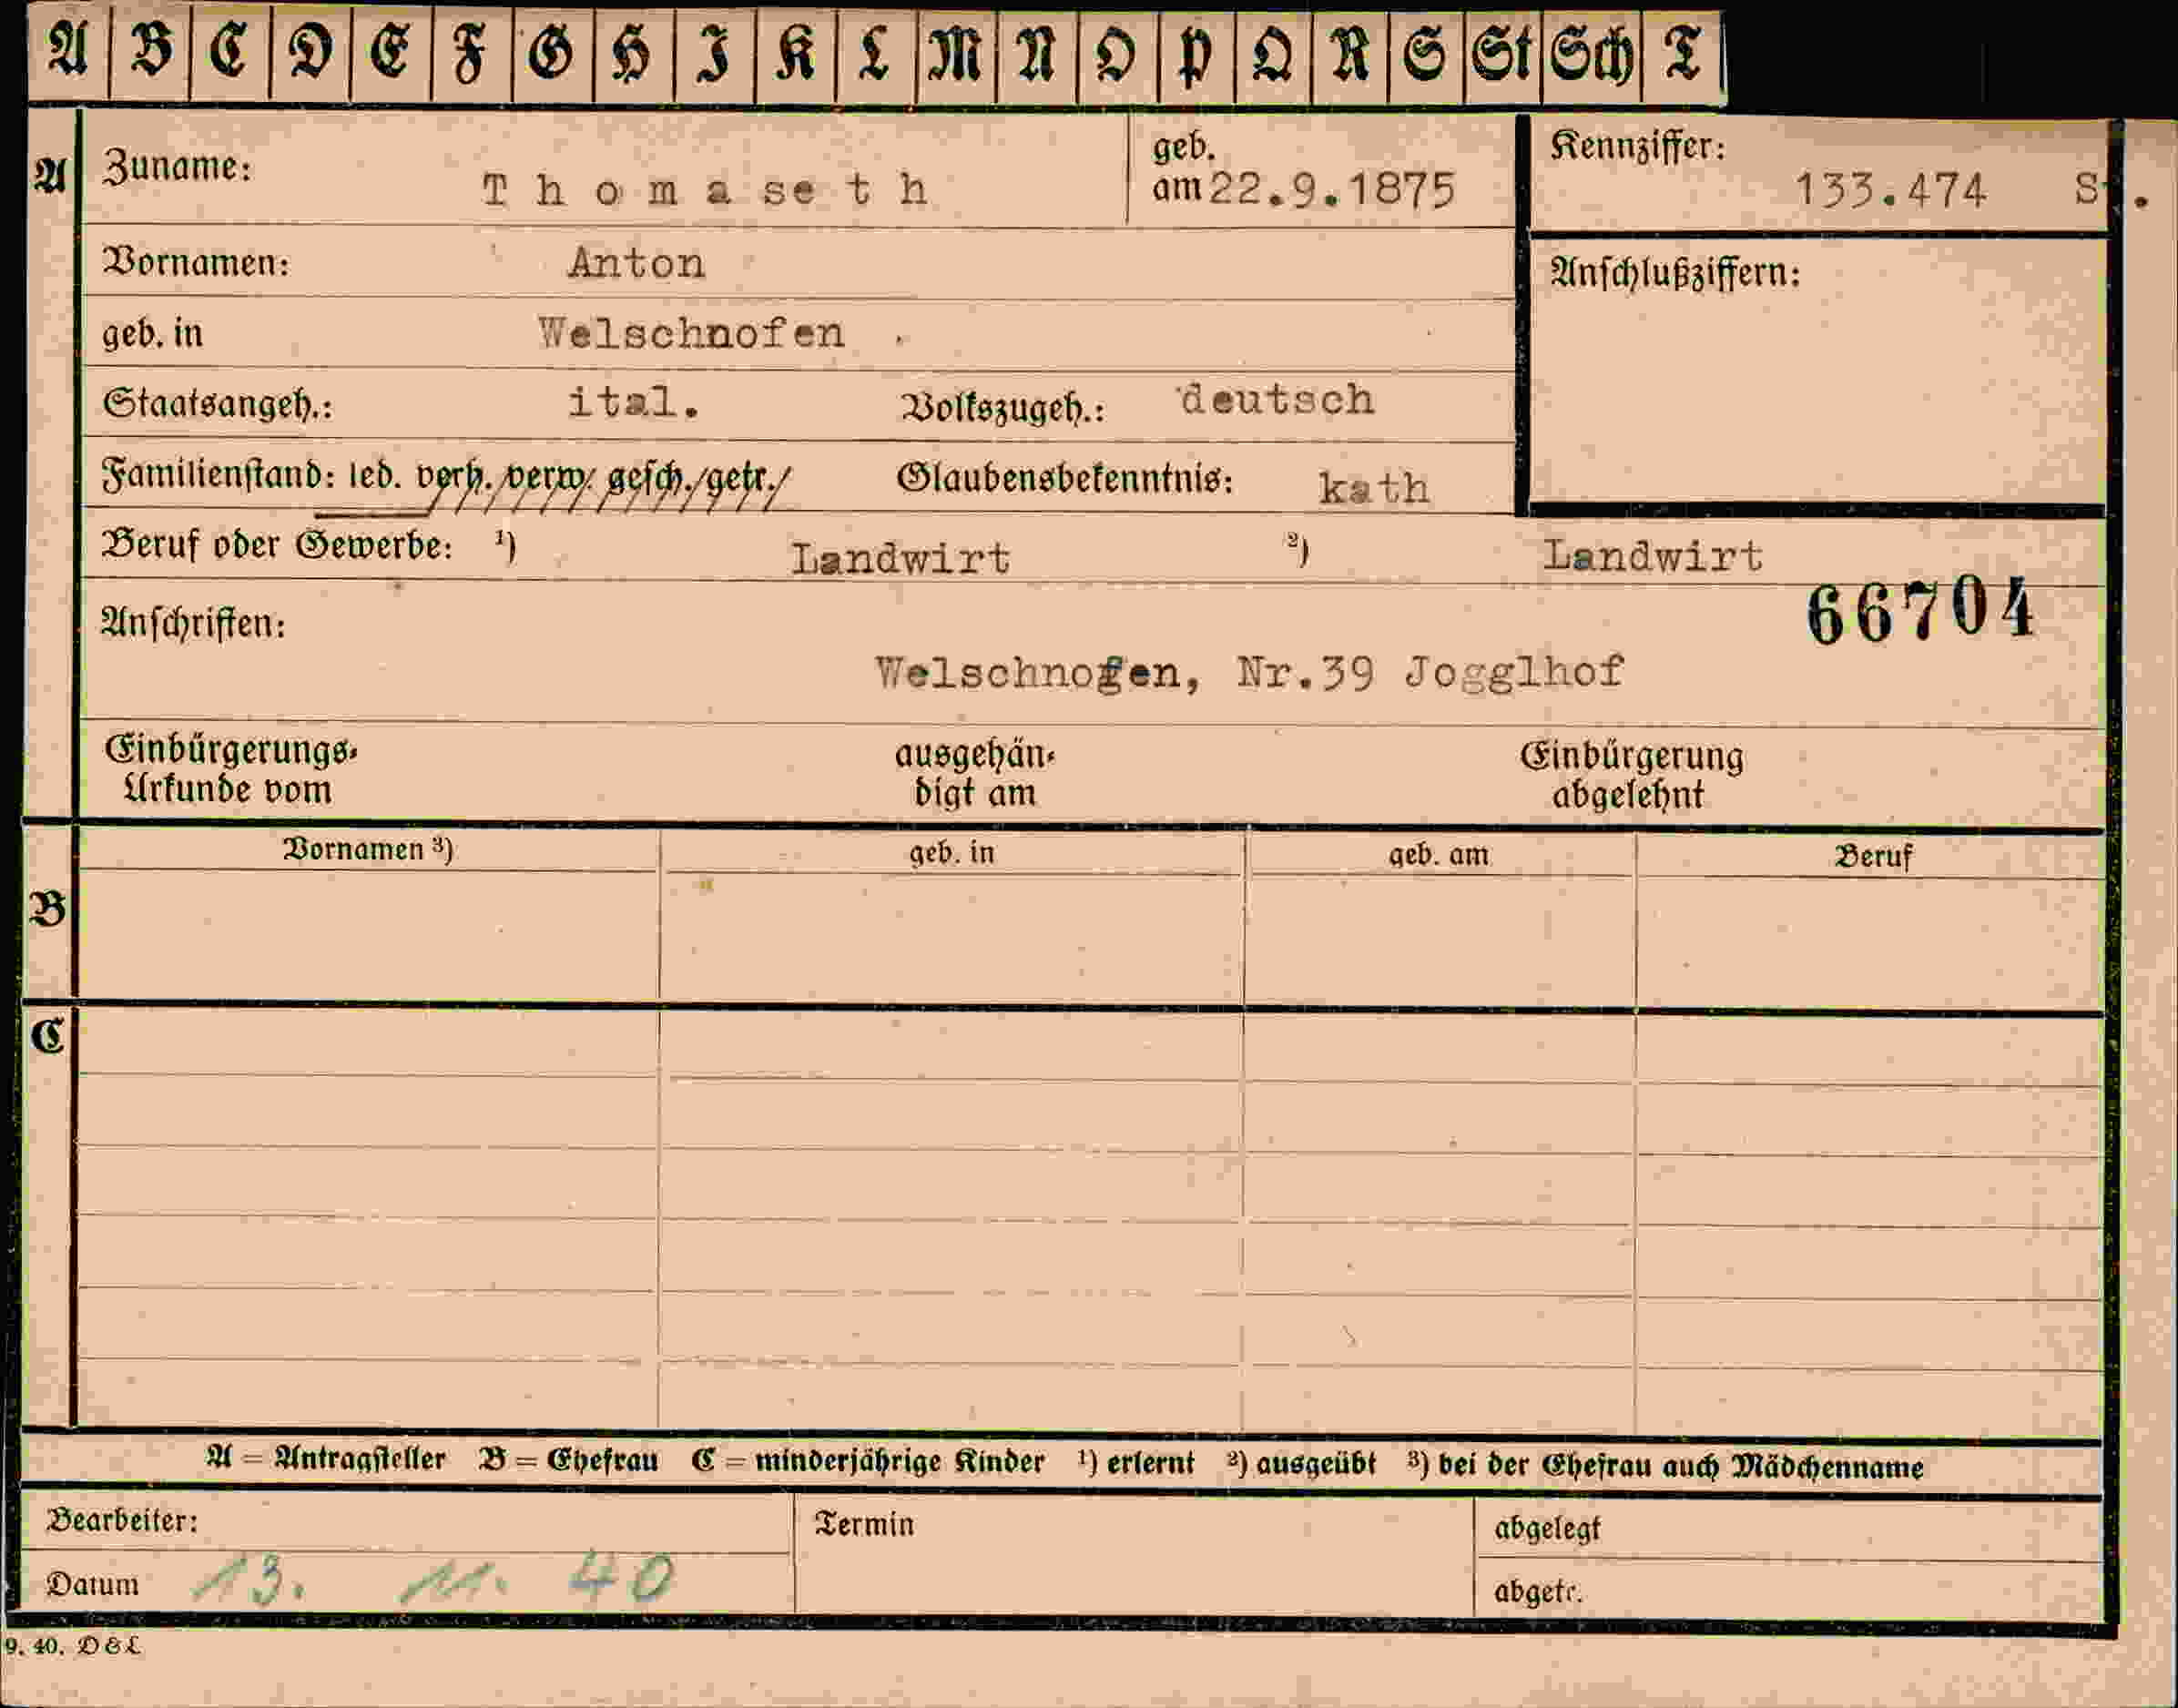 A B C D E F G H I K L M N O P Q R S St Sch T
A Zuname: Thomaseth geb. am 22.9.1875 Kennziffer: 133.474 S .
Vornamen: Anton Anschlußziffern:
geb. in Welschnofen
Staatsangeh.: ital. Volkszugeh.: deutsch
Familienstand: led. verh. verw. gesch. getr. Glaubensbekenntnis: kath
Beruf oder Gewerbe: ¹) Landwirt ²) Landwirt
66704
Anschriften:
Welschnofen, Nr.39 Jogglhof
Einbürgerungs- ausgehän- Einbürgerung
Urkunde vom digt am abgelehnt
Vornamen ³) geb. in geb. am Beruf
B
C
A = Antragsteller B = Ehefrau C = minderjährige Kinder ¹) erlernt ²) ausgeübt ³) bei der Ehefrau auch Mädchenname
Bearbeiter: Termin abgelegt
Datum 13. 11. 40 abgetr.
9. 40. D & L